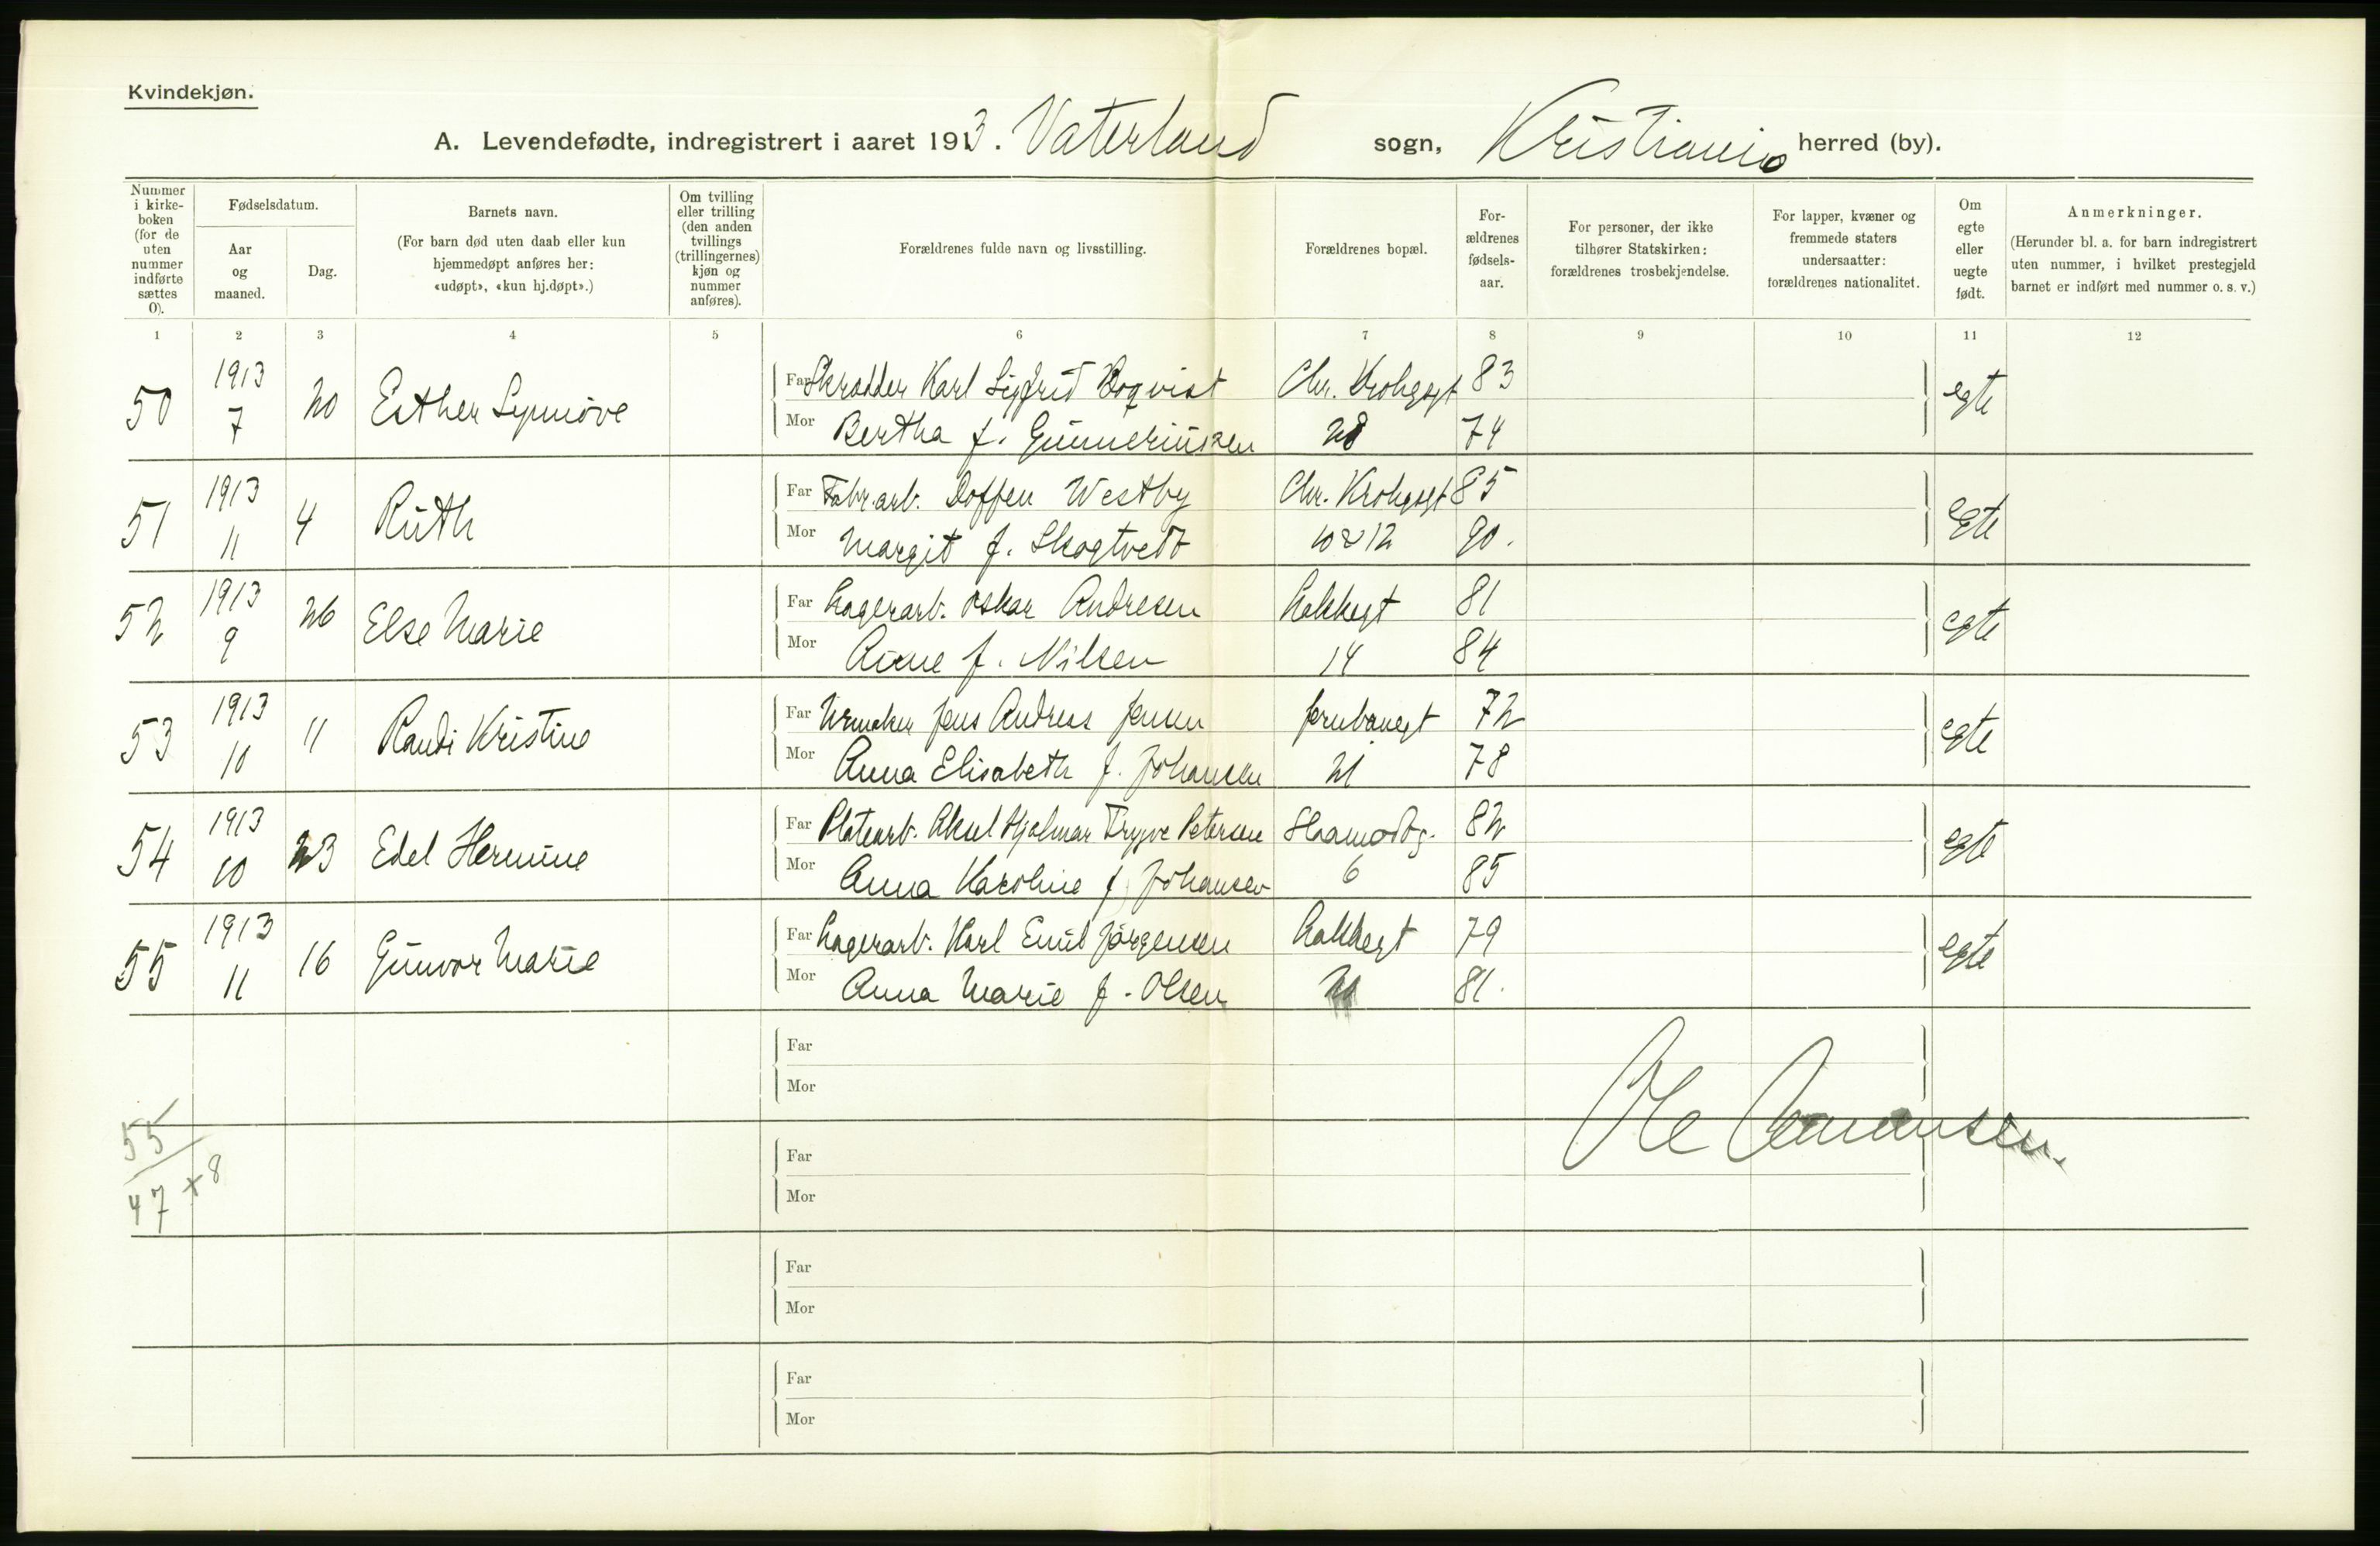 Kvindekjøn.
A. Levendefødte, indregistrert i aaret 1913. Vaterland sogn, Kristiania herred (by).
Nummer i kirkeboken (for de uten nummer indførte sættes 0).
Fødselsdatum.
Aar og maaned.
Dag.
Barnets navn.
(For barn død uten daab eller kun hjemmedøpt anføres her: «udøpt», «kun hj.døpt».)
Om tvilling eller trilling (den anden tvillings (trillingernes) kjøn og nummer anføres).
Forældrenes fulde navn og livsstilling.
Forældrenes bopæl.
Forældrenes fødselsaar.
For personer, der ikke tilhører Statskirken: forældrenes trosbekjendelse.
For lapper, kvæner og fremmede staters undersaatter: forældrenes nationalitet.
Om egte eller uegte født.
Anmerkninger.
(Herunder bl. a. for barn indregistrert uten nummer, i hvilket prestegjeld barnet er indført med nummer o. s. v.)
1 2 3 4 5 6 7 8 9 10 11 12
50 1913 7 20 Esther Synnöve Far Skrædder Karl Sigfrid Boqvist Chr. Krohgsgt 83 egte
Mor Bertha f. Gunneriusen 28 74
51 1913 11 4 Ruth Far Fabr.arb. Doffen Westby Chr. Krohgsgt 85 egte
Mor Margit f. Skogtvedt 10 & 12 90.
52 1913 9 26 Else Marie Far Lagerarb. Oskar Andresen Lakkegt 81 egte
Mor Anne f. Nilsen 14 84
53 1913 10 11 Randi Kristine Far Urmaker Jens Andreas Jensen Jernbanegt 72 egte
Mor Anna Elisabeth f. Johansen 21 78
54 1913 10 23 Edel Hermine Far Platearb. Aksel Hjalmar Trygve Petersen 82 egte
Mor Anna Karoline f. Johansen 6 85
55 1913 11 16 Gunvor Marie Far Lagerarb. Karl Emil Jörgensen Lakkegt 79 egte
Mor Anna Marie f. Olsen 81.
Far
Mor
Ole
55
47 + 8
Far
Mor
Far
Mor
Far
Mor